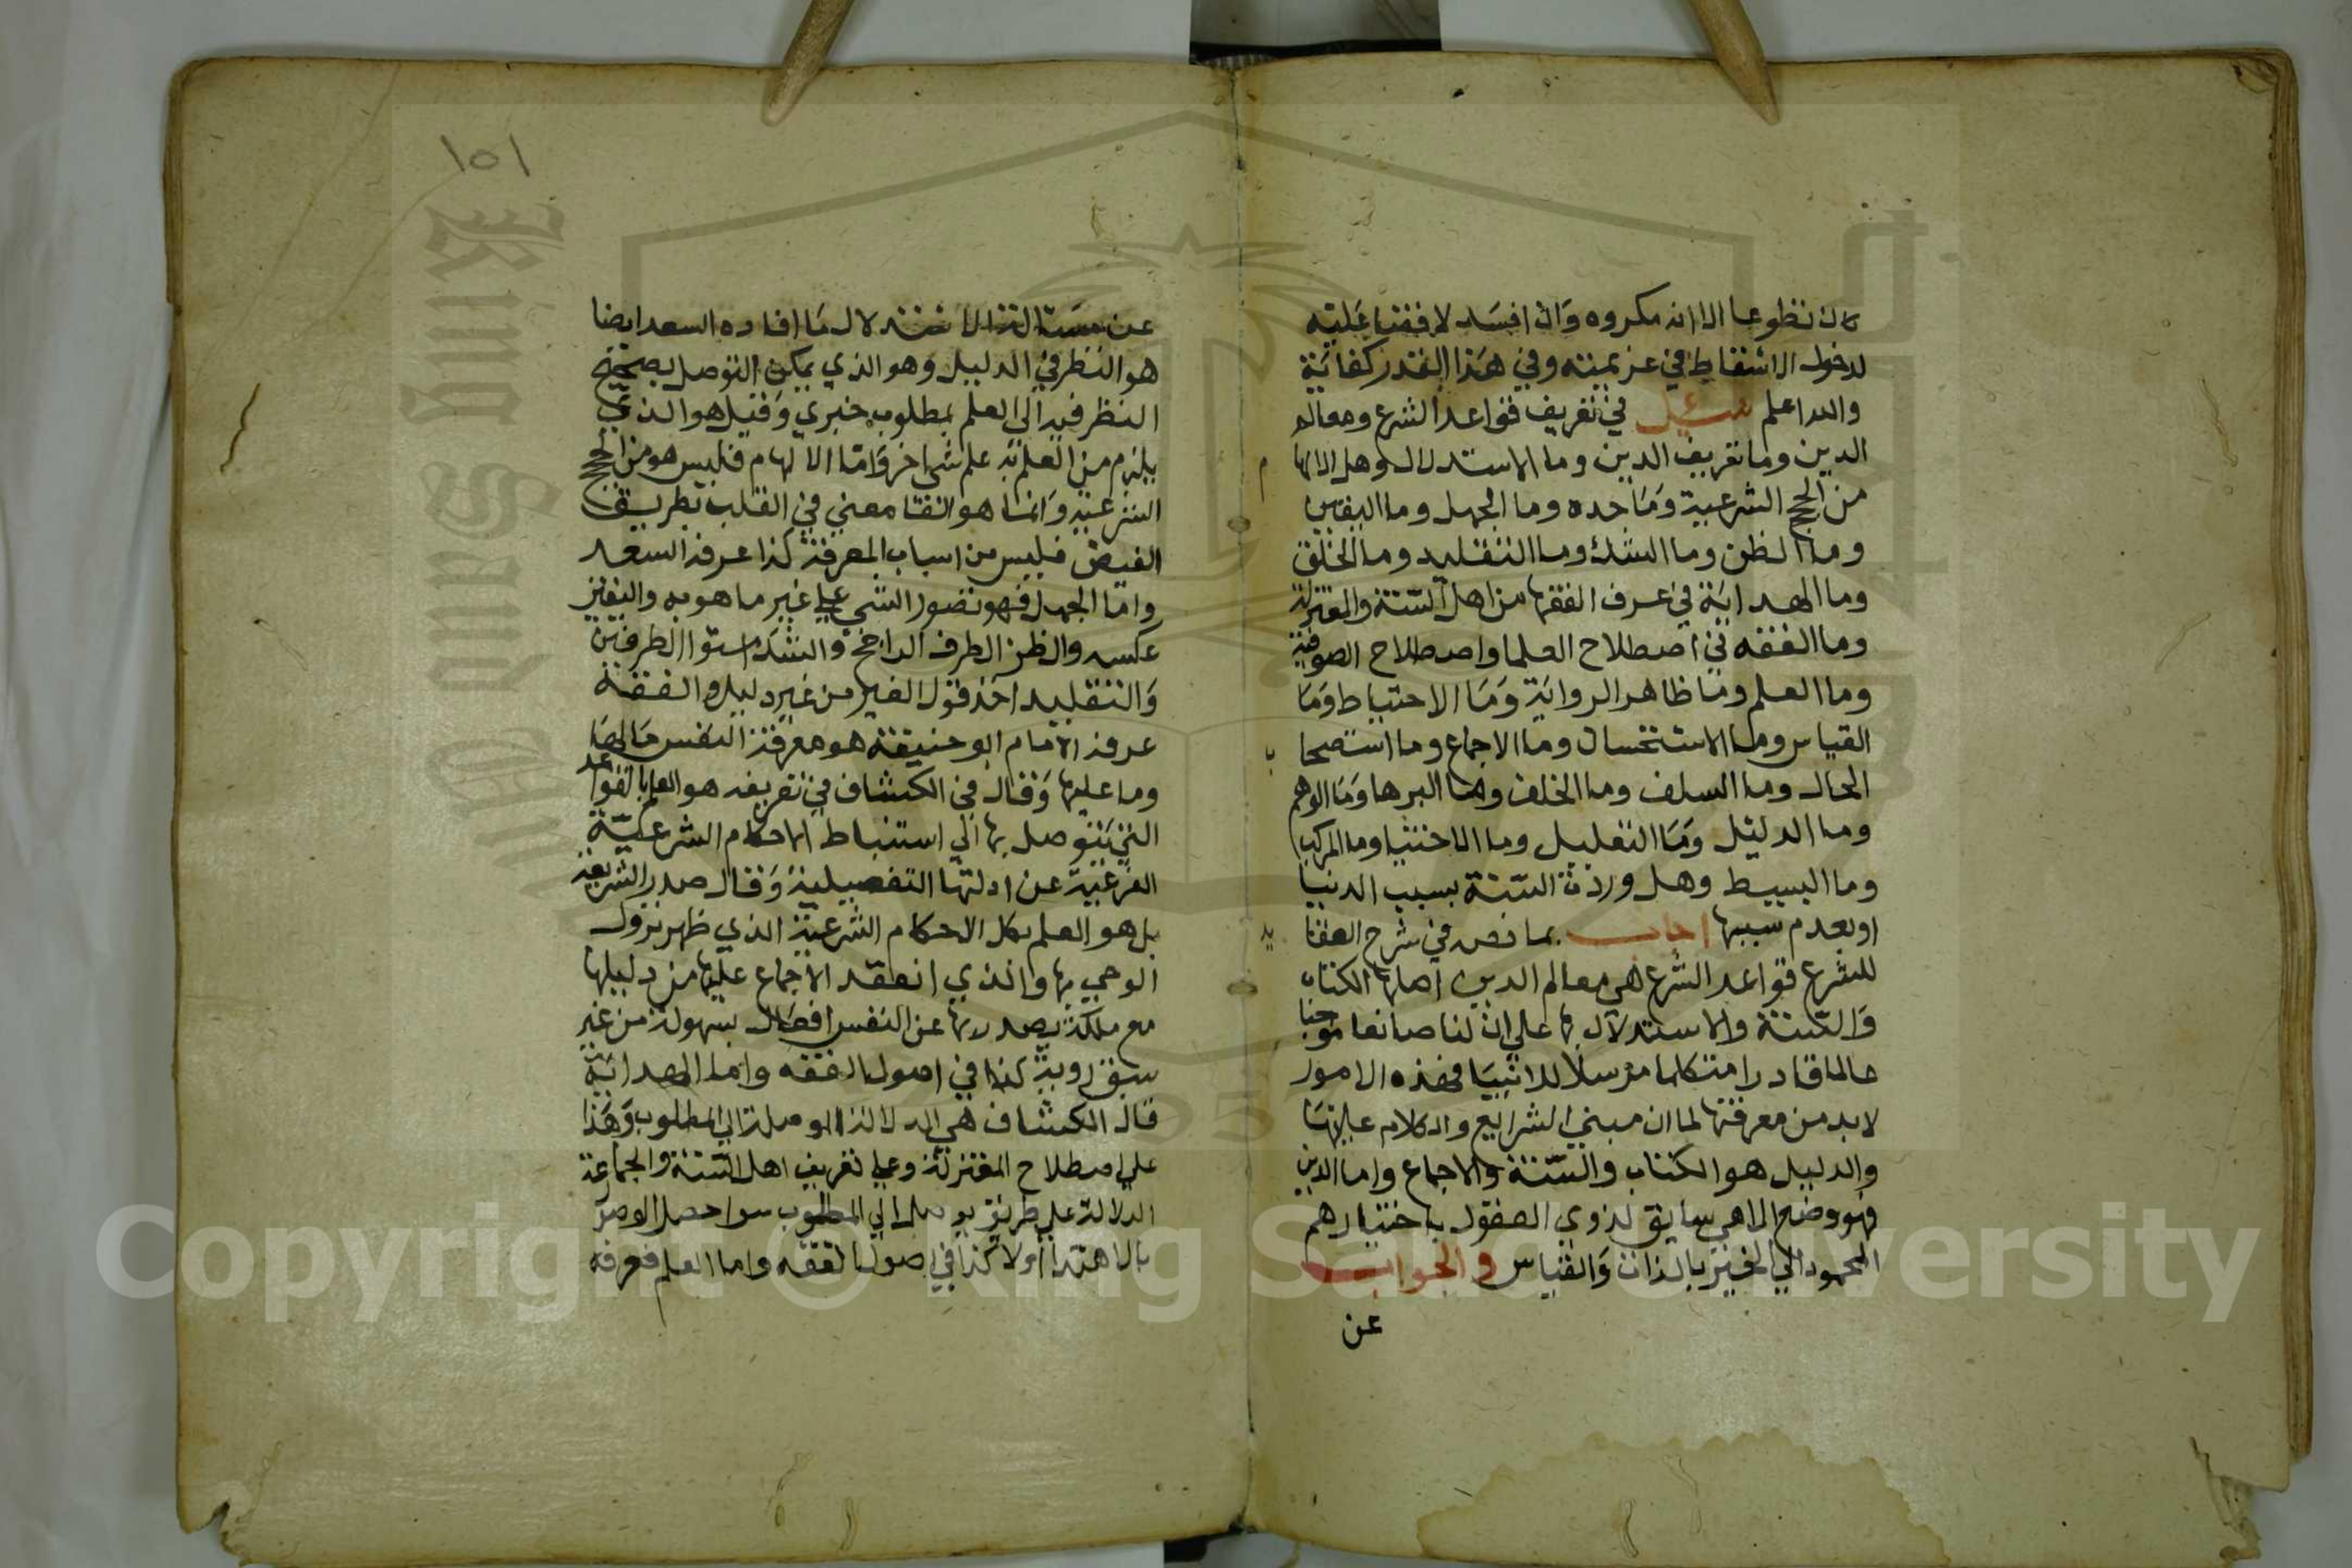 كان تطوعا الا انه مكروه وان افسد لا قضا عليه
لدخول الاسقاط في عزيمته وفي هذا القدر كفاية
والله اعلم سئل في تعريف قواعد الشرع ومعالم
الدين وما تعريف الدين وما الاستدلال وهل الالها م
من الحجج الشرعية وما حده وما الجهل وما اليقين
وما الظن وما الشك وما التقليد وما الخلق
وما الهداية في عرف الفقها من اهل السنة والمعتزلة
وما الفقه في اصطلاح العلما واصطلاح الصوفية
وما العلم وما ظاهر الرواية وما الاحتياط وما
القياس وما الاستحسان وما الاجماع وما استصحا ب
الحال وما السلف وما الخلف وما البرها وما الوهم
وما الدليل وما التعليل وما الاختيا وما المركب
وما البسيط وهل وردت السنة بسبب الدنيا
او بعدم سببها اجاب بما نص في شرح العقا يد
للشرع قواعد الشرع هي معالم الدين اصلها الكتاب
والسنة والاستدلال بها علي ان لنا صانعا موجبا
عالما قادرا متكلما مرسلا للانبيا فهذه الامور
لابد من معرفتها لما ان مبني الشرايع والكلام عليها
والدليل هو الكتاب والسنة والاجماع واما الدين
فهو وضع الاهي سايق لذوي العقول باختيارهم
المحمود الي الخير بالذات والقياس والجواب
عن
١٥١
لال ما افاده السعد ايضا
هو النظر في الدليل وهو الذي يمكن التوصل بصحيح
النظر فيه الي العلم بمطلوب خبري وقيل هو الذي
يلزم من العلم به علم شي اخر واما الالهام فليس هو من الحجج
الشرعية وانما هو القا معني في القلب بطريق
الفيض فليس من اسباب المعرفة كذا عرفه السعد
واما الجهل فهو تصور الشي علي غير ما هو به واليقين
عكسه والظن الطرف الراجح والشك استوا الطرفين
والتقليد اخذ قول الغير من غير دليل والفقه
عرفه الامام ابو حنيفة هو معرفة النفس ما لها
وما عليها وقال في الكشاف في تعريفه هو العلم بالقواعد
التي يتوصل بها الي استنباط الاحكام الشرعية
الفرعية عن ادلتها التفصيلية وقال صدر الشريعة
بل هو العلم بكل الاحكام الشرعية الذي ظهر نزول
الوحي بها والذي انعقد الاجماع عليها من دليلها
مع ملكة يصدر بها عن النفس افعال بسهولة من غير
سبق روية كذا في اصول الفقه واما الهداية
قال الكشاف هي الدلالة الموصلة الي المطلوب وهذا
علي اصطلاح المعتزلة وعلي تعريف اهل السنة والجماعة
الدلالة علي طريق يوصل الي المطلوب سوا حصل الوصول
بالاهتدا اولا كذا في اصول الفقه واما العلم فعرفه